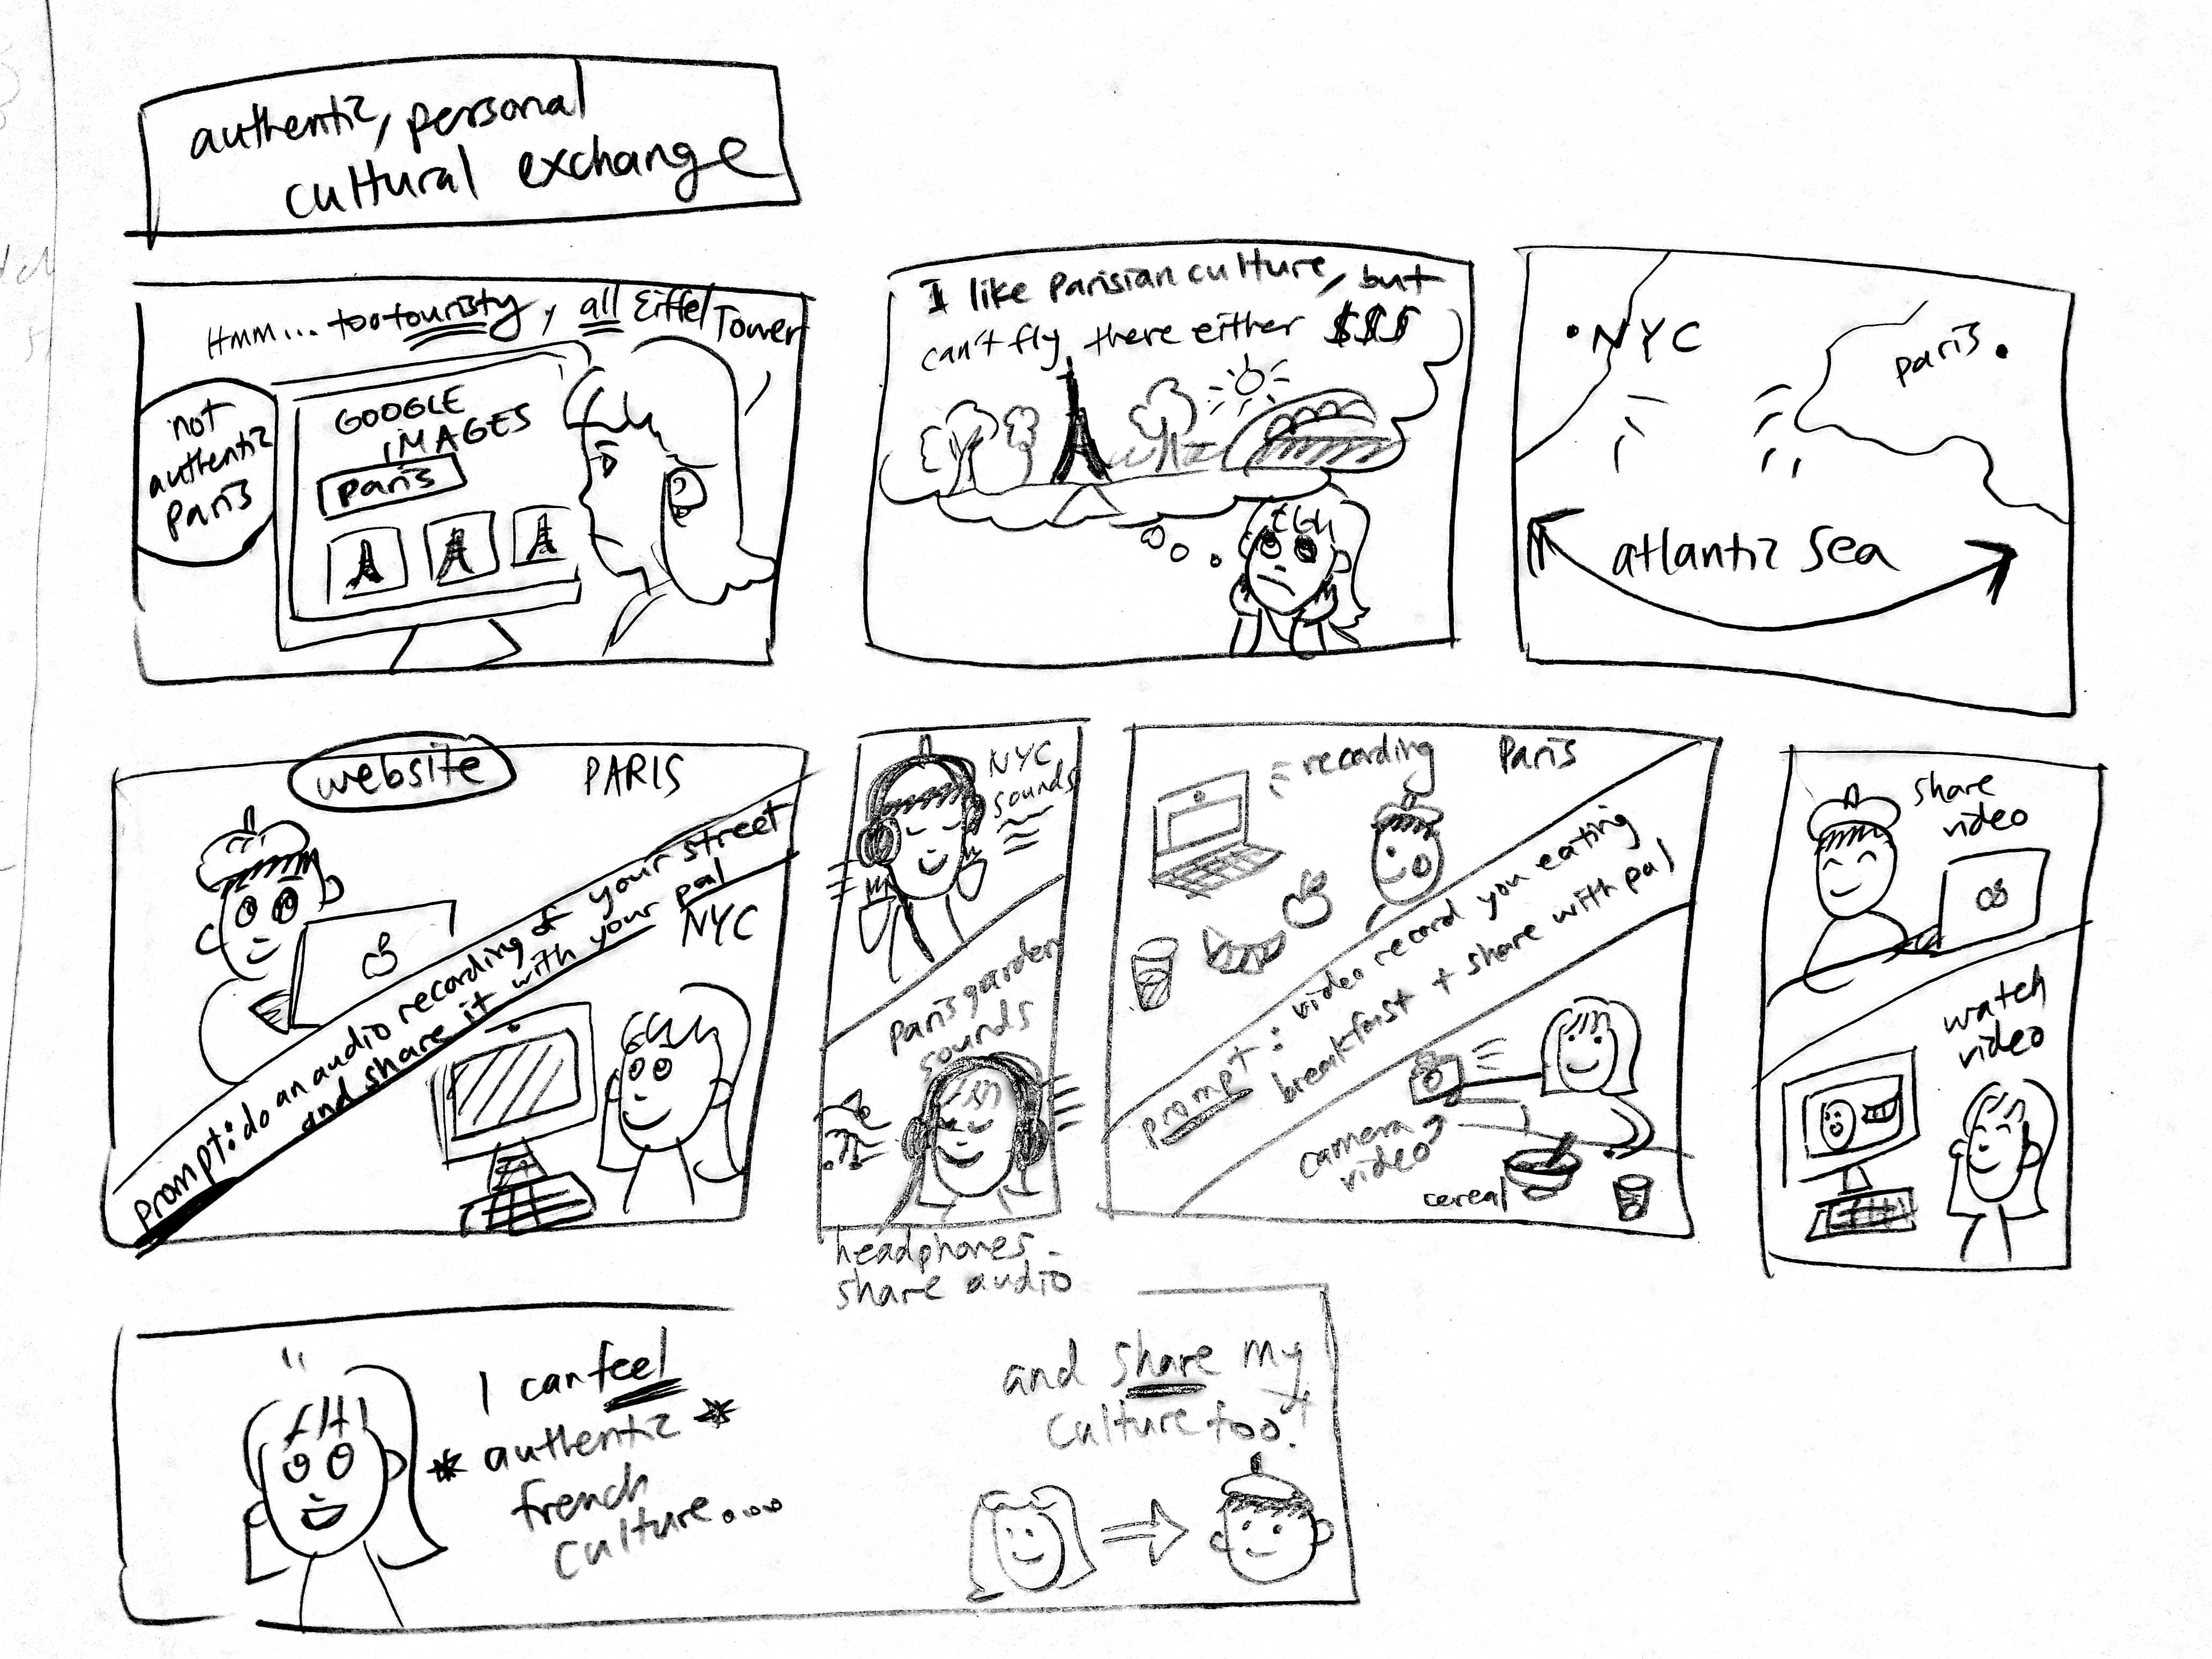 authentic, personal
cultural exchange
Hmm... too touristy, all Eiffel Tower
not
authentic
Paris
GOOGLE
IMAGES
Paris
I like Parisian culture, but
can't fly there either $$$
NYC
Paris
atlantic sea
website
PARIS
prompt: do an audio recording of your street
and share it with your pal
NYC
NYC
sounds
Paris garden
sounds
headphones
share audio
recording
Paris
prompt: video record you eating
breakfast + share with pal
camera
video
cereal
share
video
watch
video
I can feel
* authentic *
french
culture...
and share my
culture too!